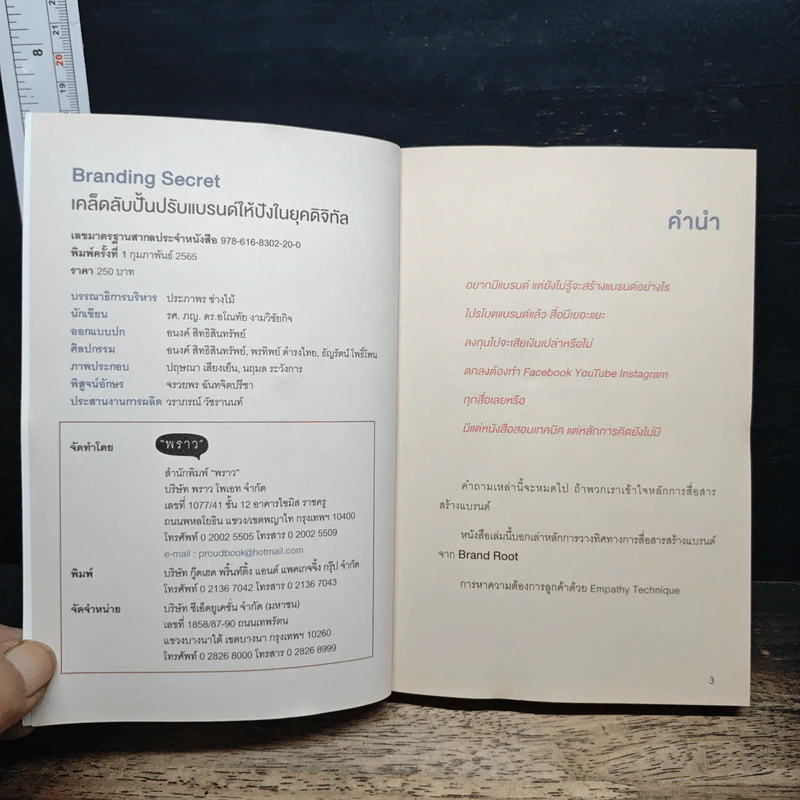 8
21
20
19
Branding Secret
เคล็ดลับปั้นปรับแบรนด์ให้ปังในยุคดิจิทัล
เลขมาตรฐานสากลประจำหนังสือ 978-616-8302-20-0
พิมพ์ครั้งที่ 1 กุมภาพันธ์ 2565
ราคา 250 บาท
บรรณาธิการบริหาร ประภาพร ช่างไม้
นักเขียน รศ. ภญ. ดร.อโณทัย งามวิชัยกิจ
ออกแบบปก อนงค์ สิทธิสินทรัพย์
ศิลปกรรม อนงค์ สิทธิสินทรัพย์, พรทิพย์ ดำรงไทย, ธัญรัตน์ โพธิ์โทน
ภาพประกอบ ปฤษณา เสียงเย็น, นฤมล ระวังการ
พิสูจน์อักษร จรวยพร ฉันทจิตปรีชา
ประสานงานการผลิต วราภรณ์ วัชรานนท์
จัดทำโดย "พราว"
สำนักพิมพ์ "พราว"
บริษัท พราว โพเอท จำกัด
เลขที่ 1077/41 ชั้น 12 อาคารไซมิส ราชครู
ถนนพหลโยธิน แขวง/เขตพญาไท กรุงเทพฯ 10400
โทรศัพท์ 0 2002 5505 โทรสาร 0 2002 5509
e-mail : proudbook@hotmail.com
พิมพ์ บริษัท กู๊ดเฮด พริ้นท์ติ้ง แอนด์ แพคเกจจิ้ง กรุ๊ป จำกัด
โทรศัพท์ 0 2136 7042 โทรสาร 0 2136 7043
จัดจำหน่าย บริษัท ซีเอ็ดยูเคชั่น จำกัด (มหาชน)
เลขที่ 1858/87-90 ถนนเทพรัตน
แขวงบางนาใต้ เขตบางนา กรุงเทพฯ 10260
โทรศัพท์ 0 2826 8000 โทรสาร 0 2826 8999
คำนำ
อยากมีแบรนด์ แต่ยังไม่รู้จะสร้างแบรนด์อย่างไร
โปรโมตแบรนด์แล้ว สื่อมีเยอะแยะ
ลงทุนไปจะเสียเงินเปล่าหรือไม่
ตกลงต้องทำ Facebook YouTube Instagram
ทุกสื่อเลยหรือ
มีแต่หนังสือสอนเทคนิค แต่หลักการคิดยังไม่มี
คำถามเหล่านี้จะหมดไป ถ้าพวกเราเข้าใจหลักการสื่อสาร
สร้างแบรนด์
หนังสือเล่มนี้บอกเล่าหลักการวางทิศทางการสื่อสารสร้างแบรนด์
จาก Brand Root
การหาความต้องการลูกค้าด้วย Empathy Technique
3